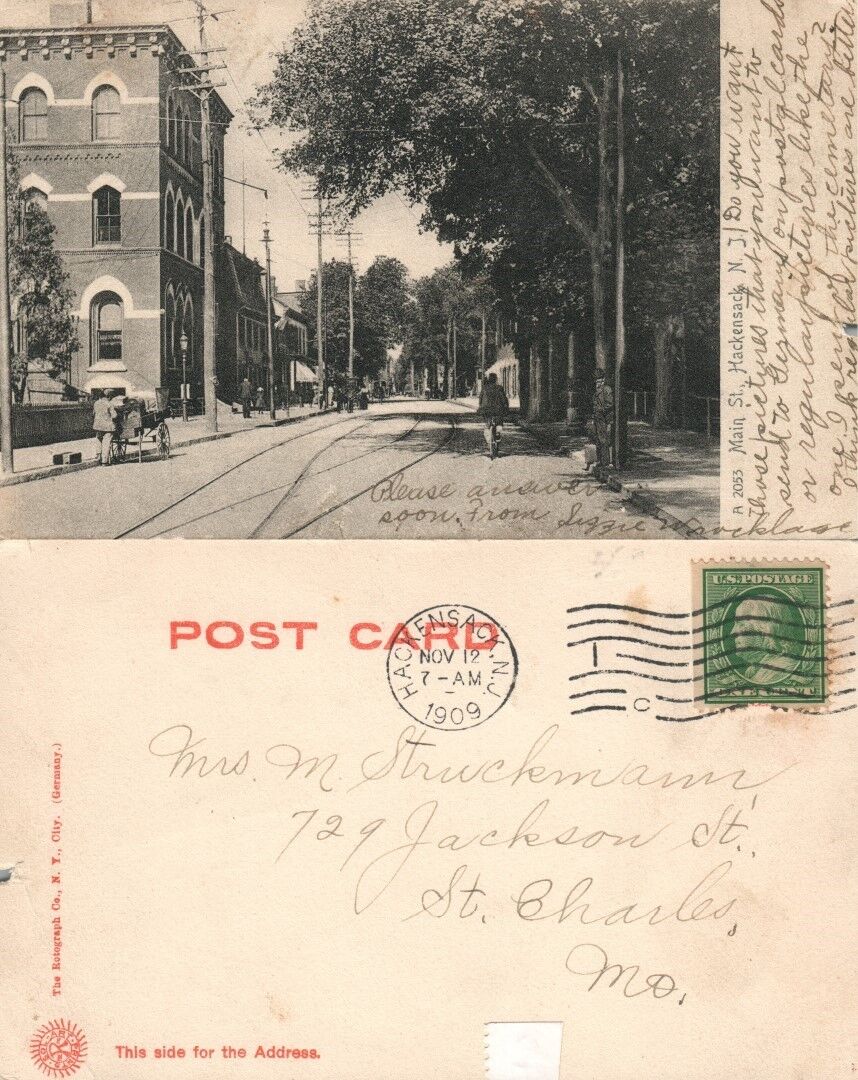 A 2053 Main St., Hackensack, N. J.
Do you want
those pictures that you want to
send to Germany on postal cards
or regular pictures like the
one I send of the cemetary?
I think regular pictures are better
Please answer
soon. From Lizzie
POST CARD
HACKENSACK, N.J.
NOV 12
7-AM
1909
1
C
U.S. POSTAGE
Mrs. M. Struckmann
729 Jackson St.
St. Charles,
Mo.
The Rotograph Co., N. Y., City. (Germany.)
This side for the Address.